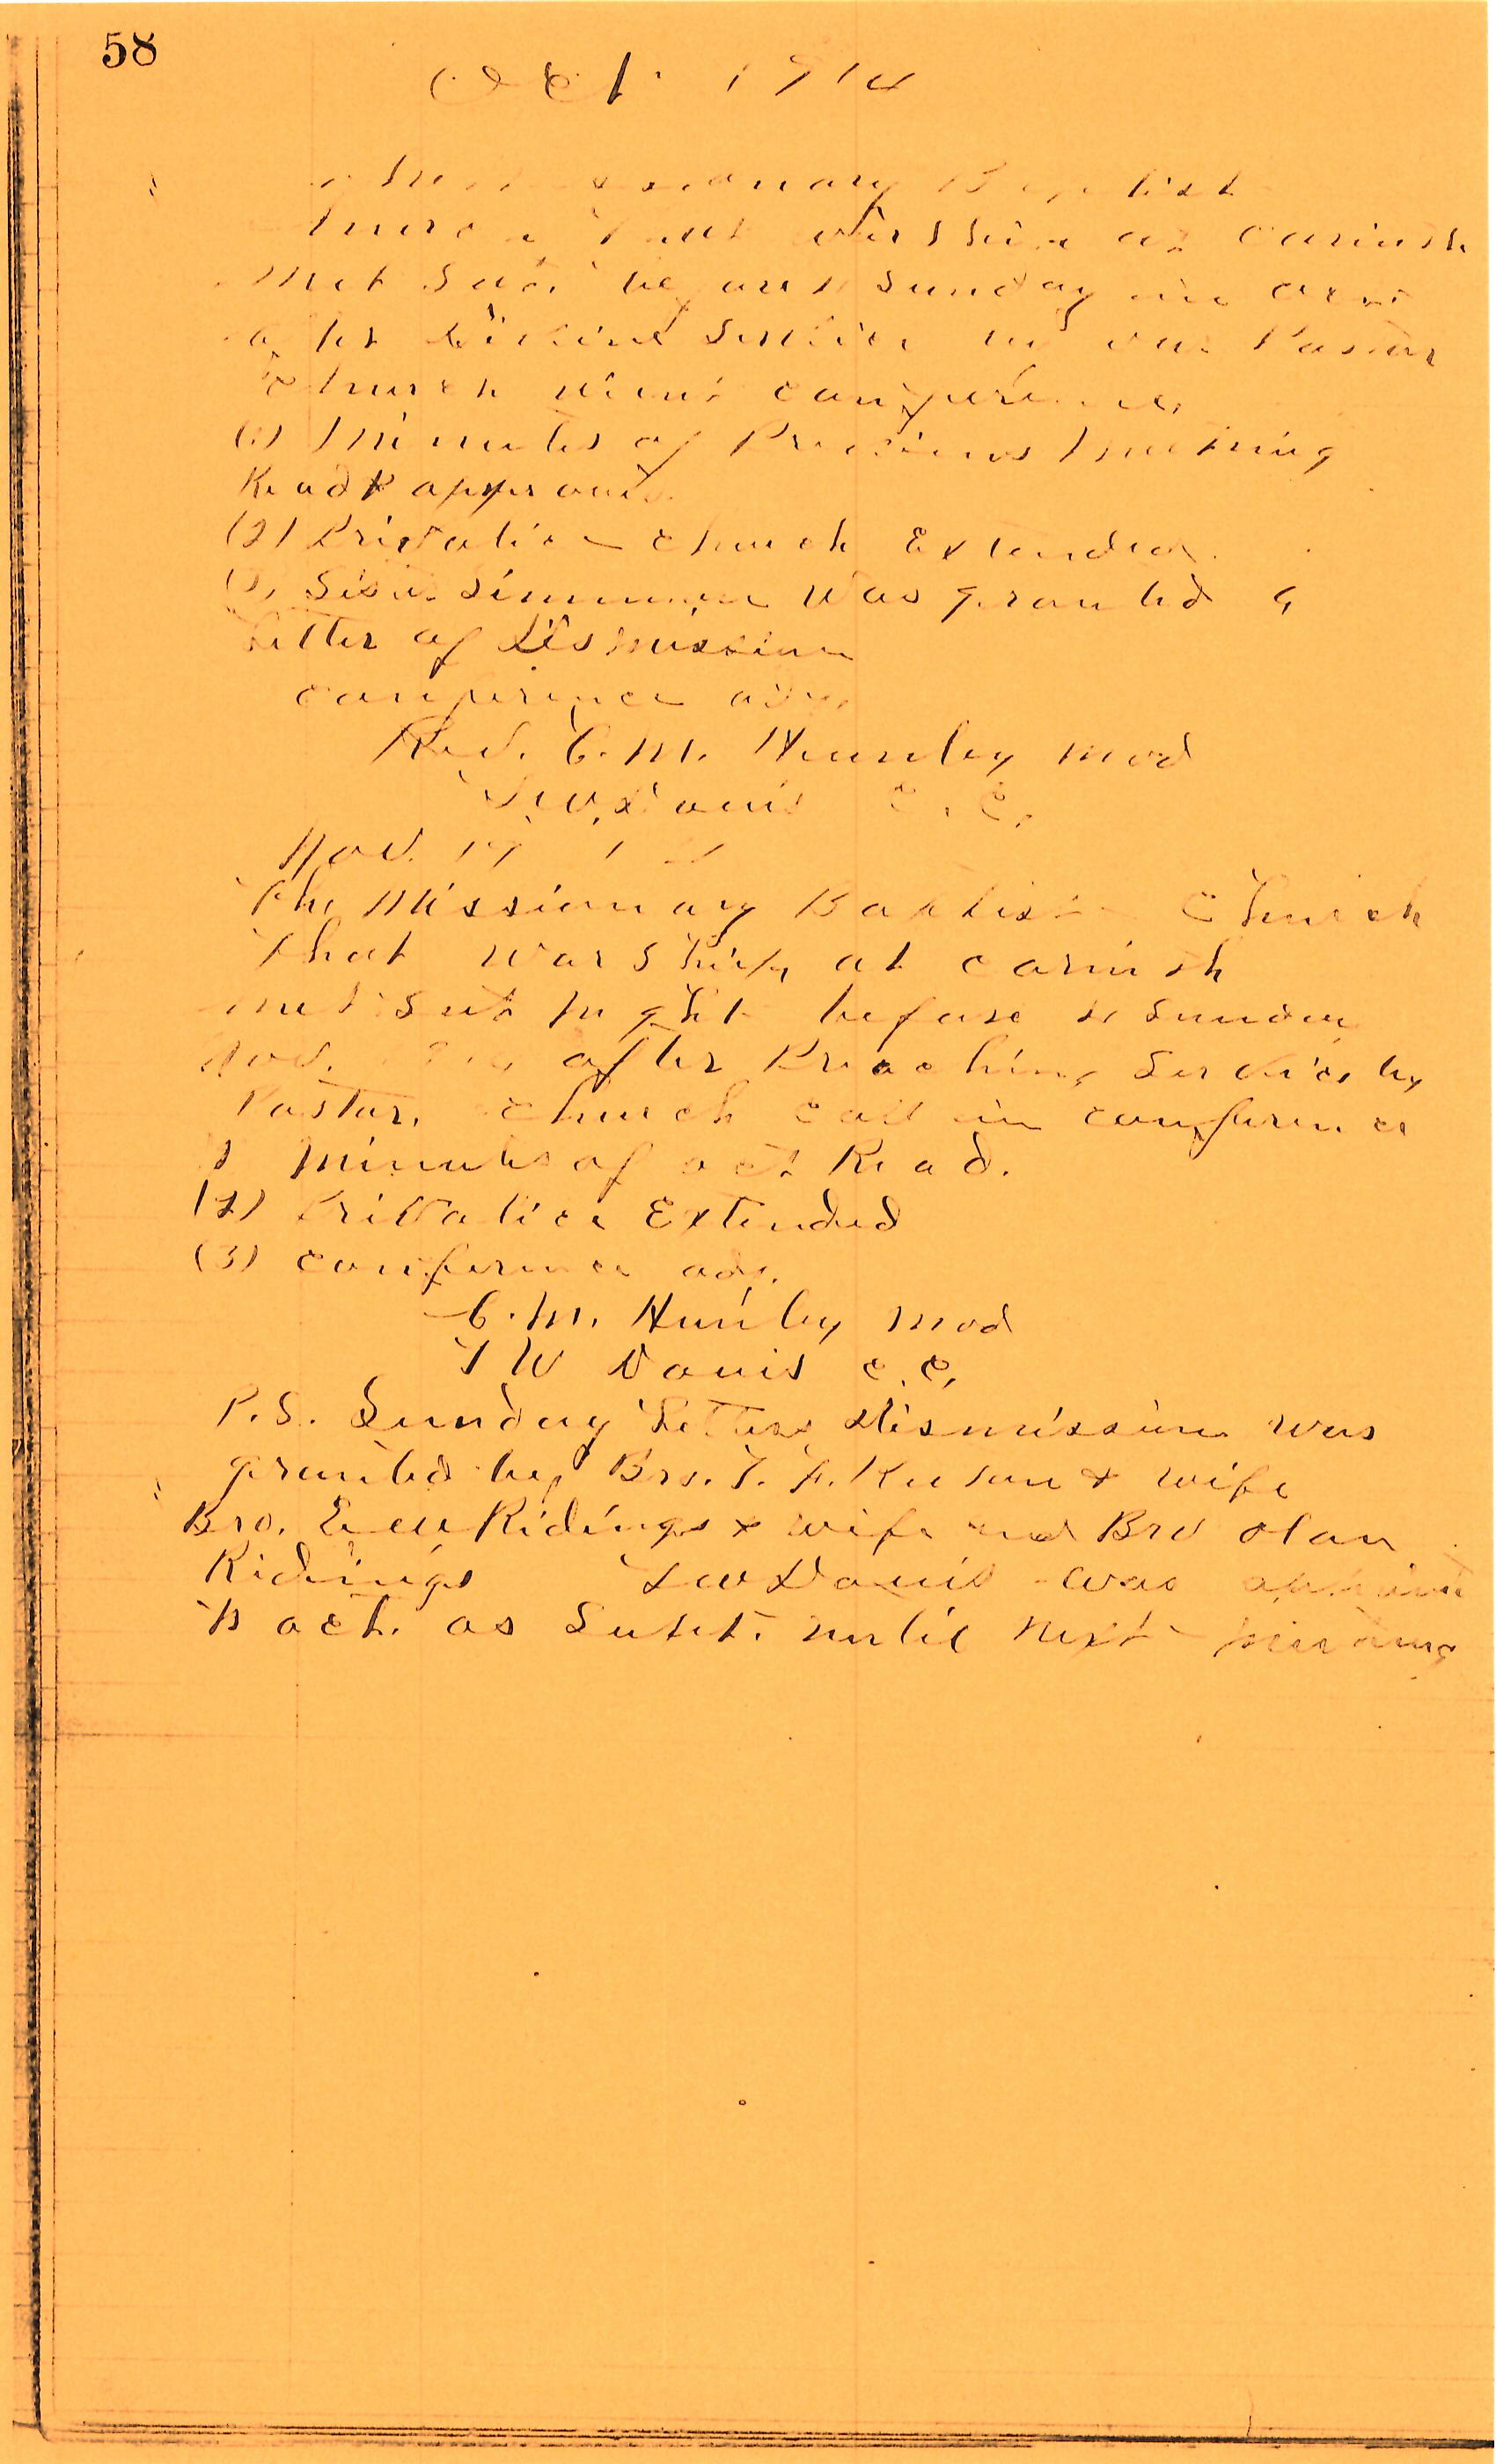 58
Oct. 1914
Missionary Baptist
Church that worship at Corinth
Met Sat. before 1 Sunday in
after divine service by our Pastor
Church went conference
(1) Minutes of Previous Meeting
Read & approved.
(2) Privalige church Extended.
(3) Sister was granted a
Letter of Dismission
conference adj.
Rev. C. M. Hunley Mod
T. W. Davis C. C.
Nov. 19
The Missionary Baptist Church
that worship at corinth
met Sat night before 1 Sunday
Nov. after Preaching Service by
Pastor. church call in conference
1 minutes of oct Read.
(2) Privalice Extended
(3) conference adj.
C. M. Hunley Mod
T W Davis c. c.
P.S. Sunday Letters Dismission was
granted by Bro. & wife
Bro. Ridings & wife and Bro olan
Ridings T W Davis was
to act. as Supt. until next meeting